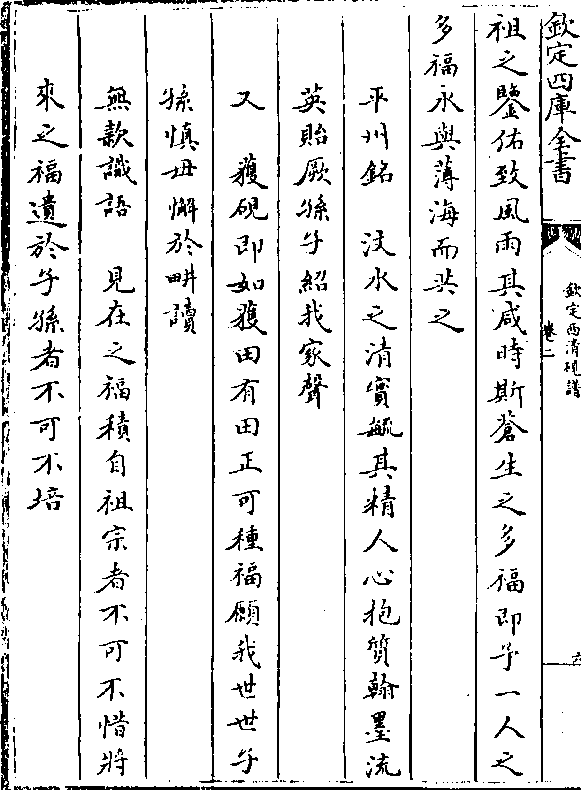 欽定四庫全書
欽定西清硯譜
卷二
六
祖之鑒佑致風雨其咸時斯蒼生之多福即予一人之
多福永與薄海而共之
平州銘　汶水之清實毓其精人心抱質翰墨流
英貽厥孫子紹我家聲
又　獲硯即如獲田有田正可種福願我世世子
孫慎毋懈於畊讀
無款識語　見在之福積自祖宗者不可不惜將
來之福遺於子孫者不可不培